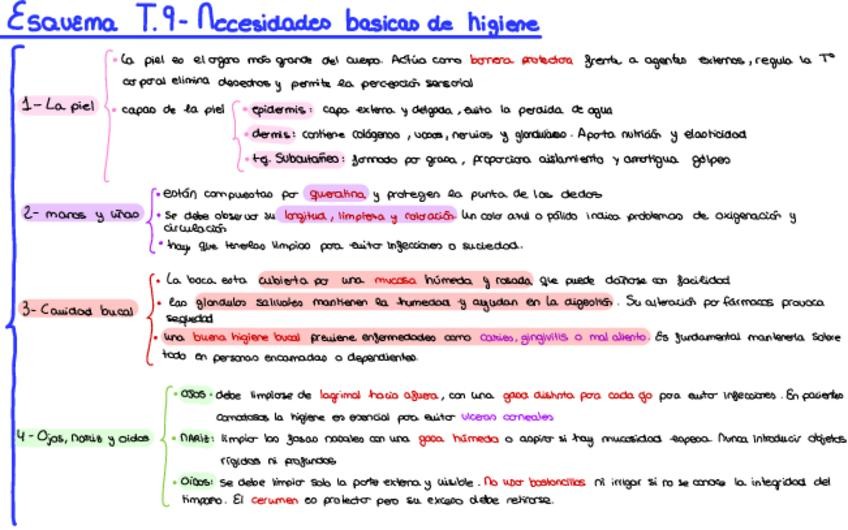 Esquema T.9- Necesidades basicas de higiene
1- La piel
· La piel es el organo más grande del cuerpo. Actúa como barrera protectora frente a agentes externos, regula la Tª
corporal elimina desechos y permite la percepción sensorial
· capas de la piel
· epidermis: capa externa y delgada, evita la perdida de agua
· dermis: contiene colágenos, vasos, nervios y glandulas. Aporta nutrición y elasticidad
· tej. Subcutáneo: formado por grasa, proporciona aislamiento y amortigua golpes
2- manos y uñas
· están compuestas por queratina y protegen la punta de los dedos
· se debe observar su longitud, limpieza y coloración. Un color azul o pálido indica problemas de oxigenación y
circulación
· hay que tenerlas limpias para evitar infecciones o suciedad.
3- Cavidad bucal
· La boca esta cubierta por una mucosa húmeda y rosada que puede dañarse con facilidad
· las glandulas salivales mantienen la humedad y ayudan en la digestión. Su alteración por fármacos provoca
sequedad
· una buena higiene bucal previene enfermedades como caries, gingivitis o mal aliento. Es fundamental mantenerla sobre
todo en personas encamadas o dependientes.
4- Ojos, nariz y oidos
· OJOS: debe limpiarse de lagrimal hacia afuera, con una gasa distinta para cada ojo para evitar infecciones. En pacientes
comatosos la higiene es esencial para evitar ulceras corneales
· NARIZ: limpiar las fosas nasales con una gasa húmeda o aspirar si hay mucosidad espesa. Nunca introducir objetos
rígidos ni profundos
· OIDOS: Se debe limpiar solo la parte externa y visible. No usar bastoncillos ni irrigar si no se conoce la integridad del
timpano. El cerumen es protector pero su exceso debe retirarse.